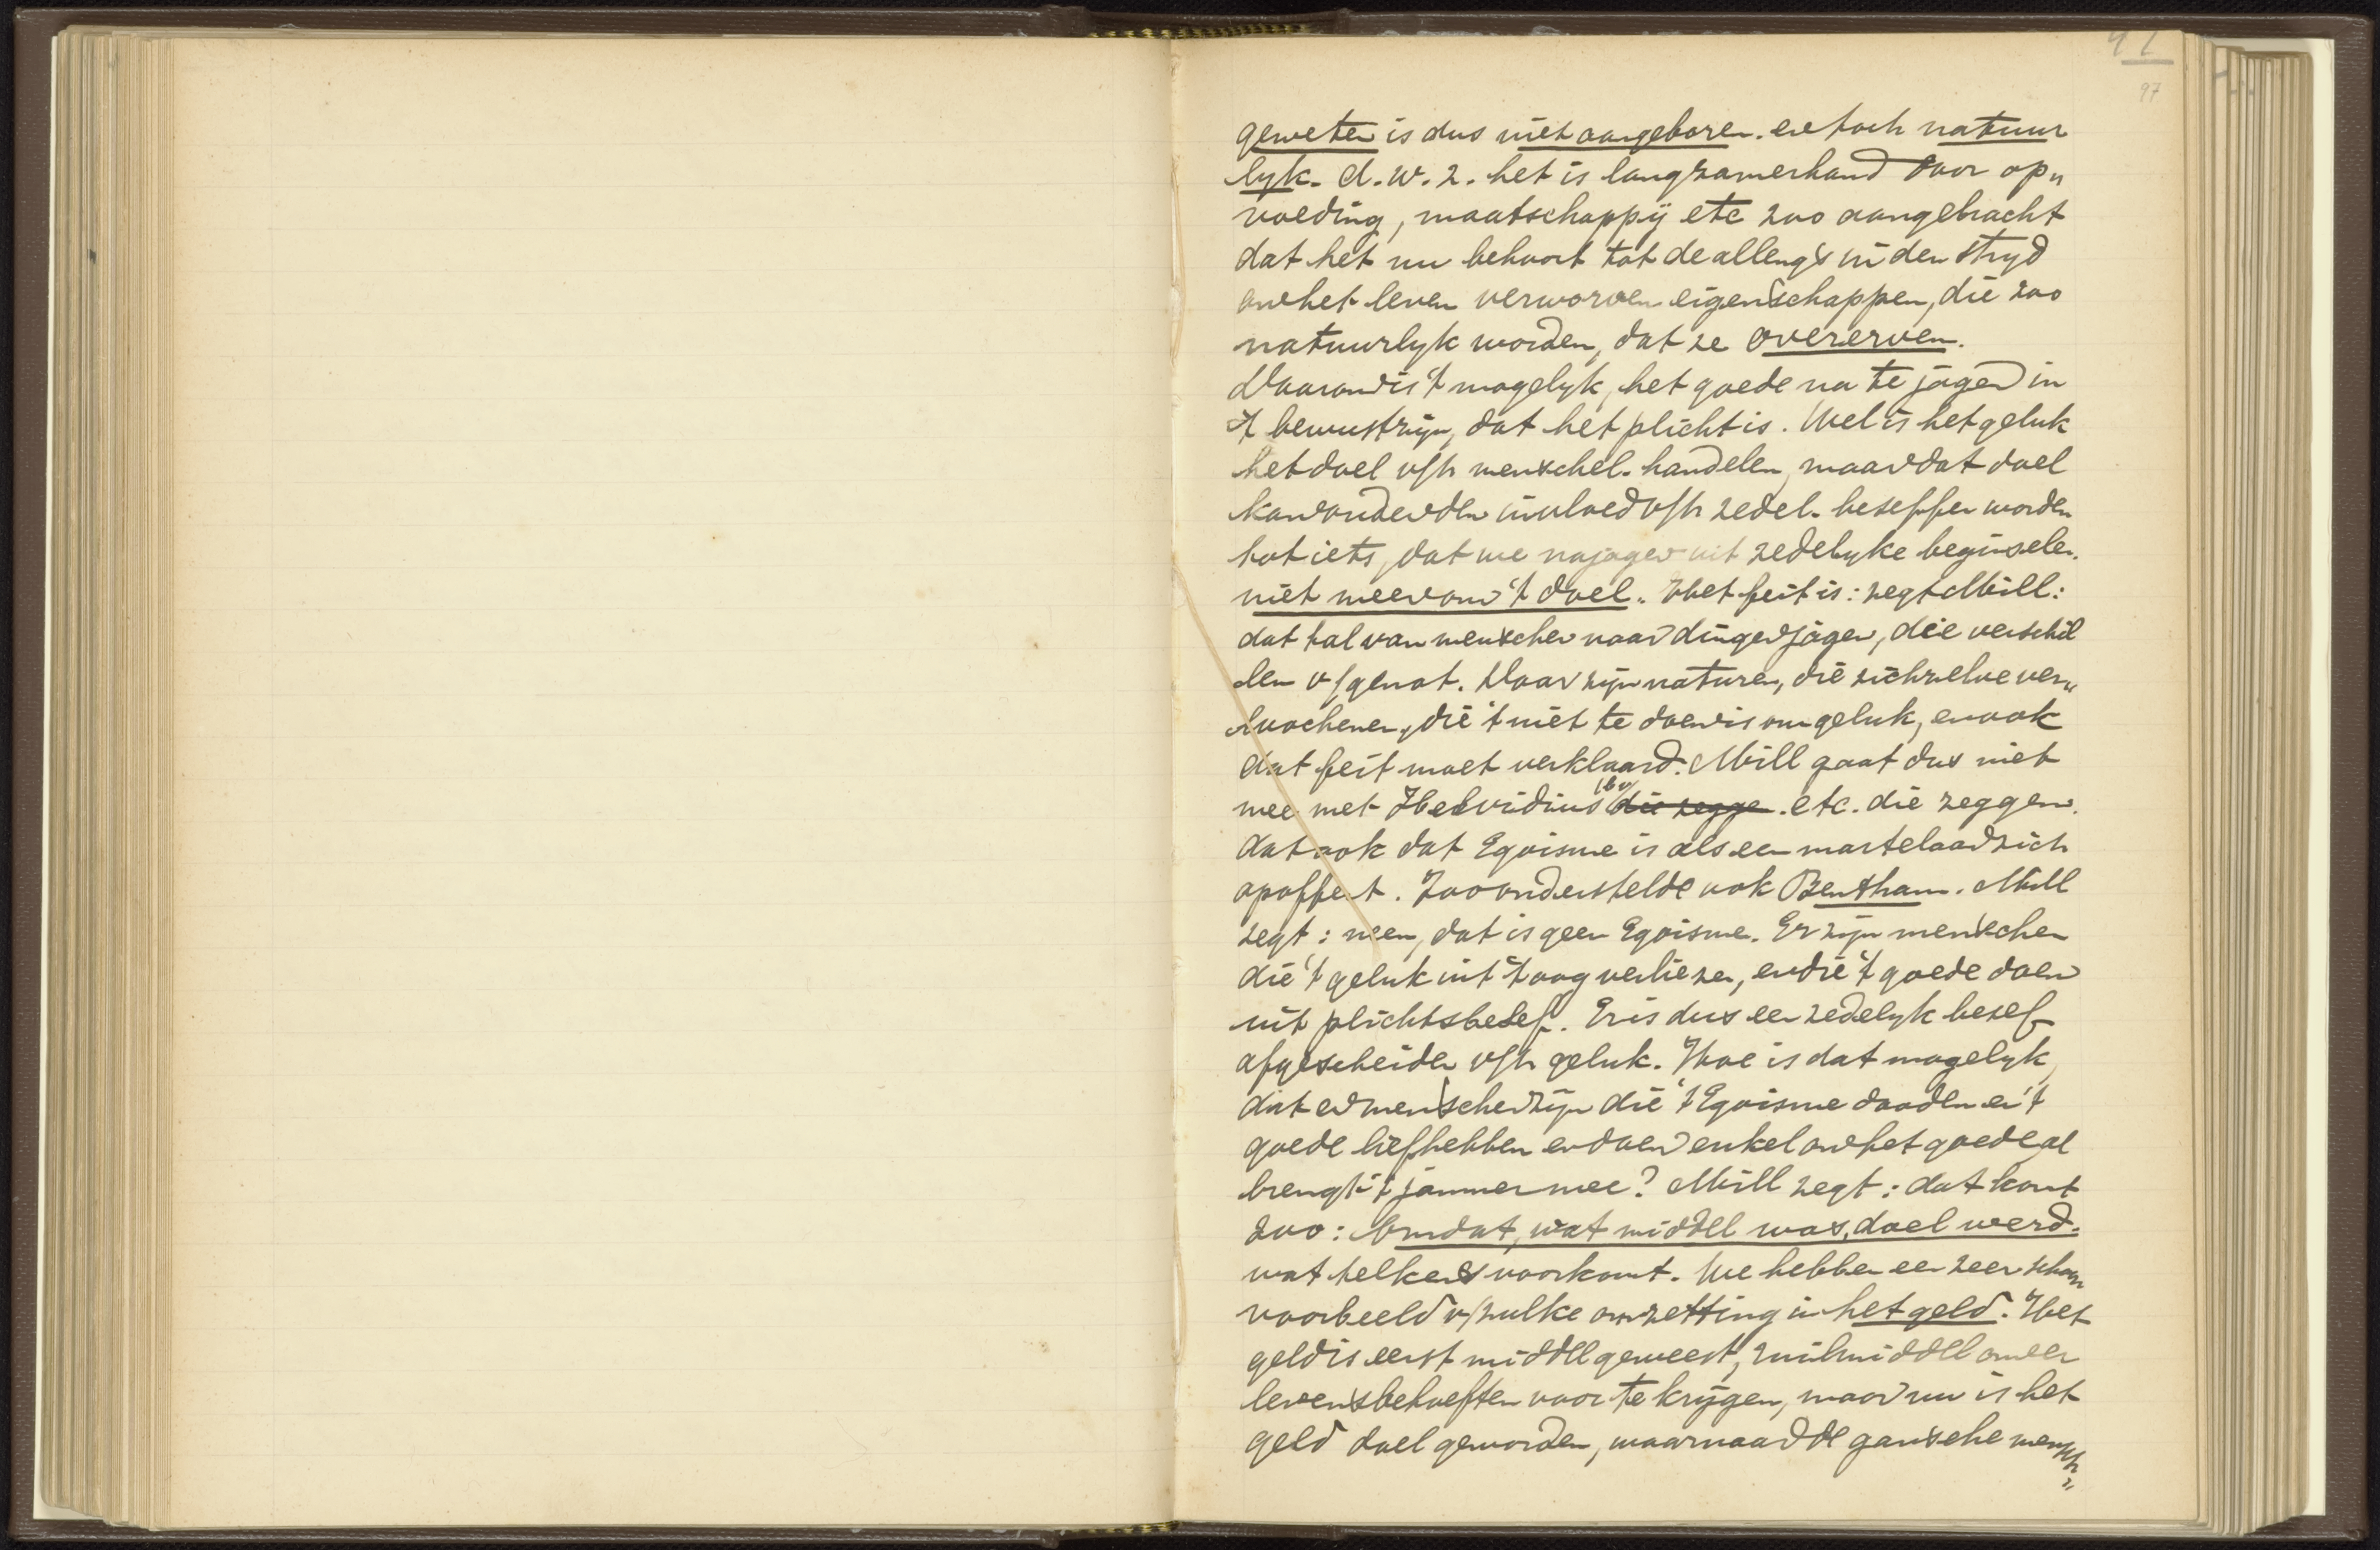 97
geweten is dus niet aangeboren. en toch natuur
lyk. d.w.z. het is langzamerhand door op„
voeding, maatschappij etc zoo aangebracht
dat het nu behoort tot de allengs in den stryd
om het leven verworven eigenschappen, die zoo
natuurlyk worden, dat ze overerven.
Daarom is 't mogelyk, het goede na te jagen in
't bewustzijn, dat het plicht is. Wel is het geluk
het doel v/h menschel. handelen, maar dat doel
kan onder den invloed v/h zedel. beseffen worden
tot iets, dat we najagen uit zedelyke beginselen.
niet meer om 't doel. Het feit is: zegt Mill:
dat tal van menschen naar dingen jagen, die verschil
len v/genot. Daar zijn naturen, die zichzelve ver„
loochenen, die 't niet te doen is om geluk, en ook
dat feit moet verklaard. Mill gaat dus niet
mee met Helvidius die zegge. etc. die zeggen.
dat ook dat Egoisme is als een martelaar zich
opoffert. Zoo onderstelde ook Bentham. Mill
zegt: neen, dat is geen Egoisme. Er zijn menschen
die 't geluk uit 't oog verliezen, en die 't goede doen
uit plichtsbesef. Er is dus een zedelyk besef
afgescheiden v/h geluk. Hoe is dat mogelyk,
dat er menschen zijn die 't Egoisme dooden en 't
goede liefhebben en doen enkel om het goede al
brengt 't jammer mee? Mill zegt: dat komt
zoo: Omdat, wat middel was, doel werd.
wat telkens voorkomt. We hebben een zeer schoon
voorbeeld v/zulke omzetting in het geld. Het
geld is eerst middel geweest, ruilmiddel om er
levensbehoeften voor te krijgen, maar nu is het
geld doel geworden, waarnaar de gansche mensch„